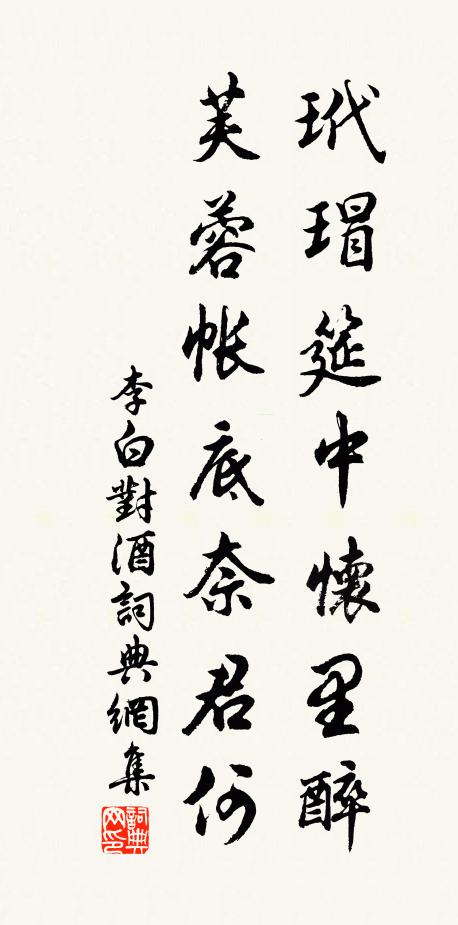 玳瑁筵中懷里醉
芙蓉帳底奈君何
李白對酒詞典網集
詞典網印